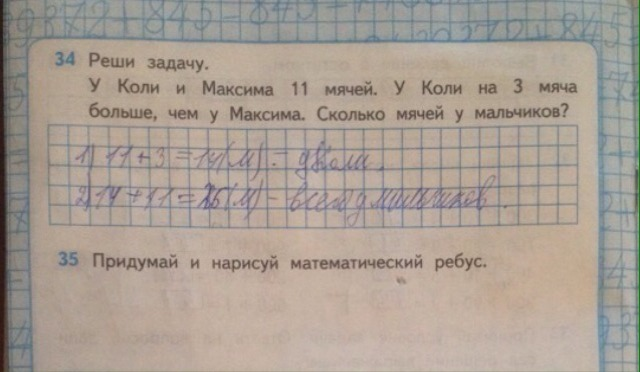 34 Реши задачу.
У Коли и Максима 11 мячей. У Коли на 3 мяча
больше, чем у Максима. Сколько мячей у мальчиков?
1) 11+3=14(м) - у Коли.
2) 14+11=25(м) - всего у мальчиков.
35 Придумай и нарисуй математический ребус.